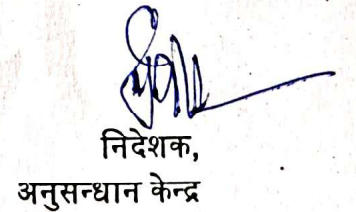 निदेशक,
अनुसन्धान केन्द्र